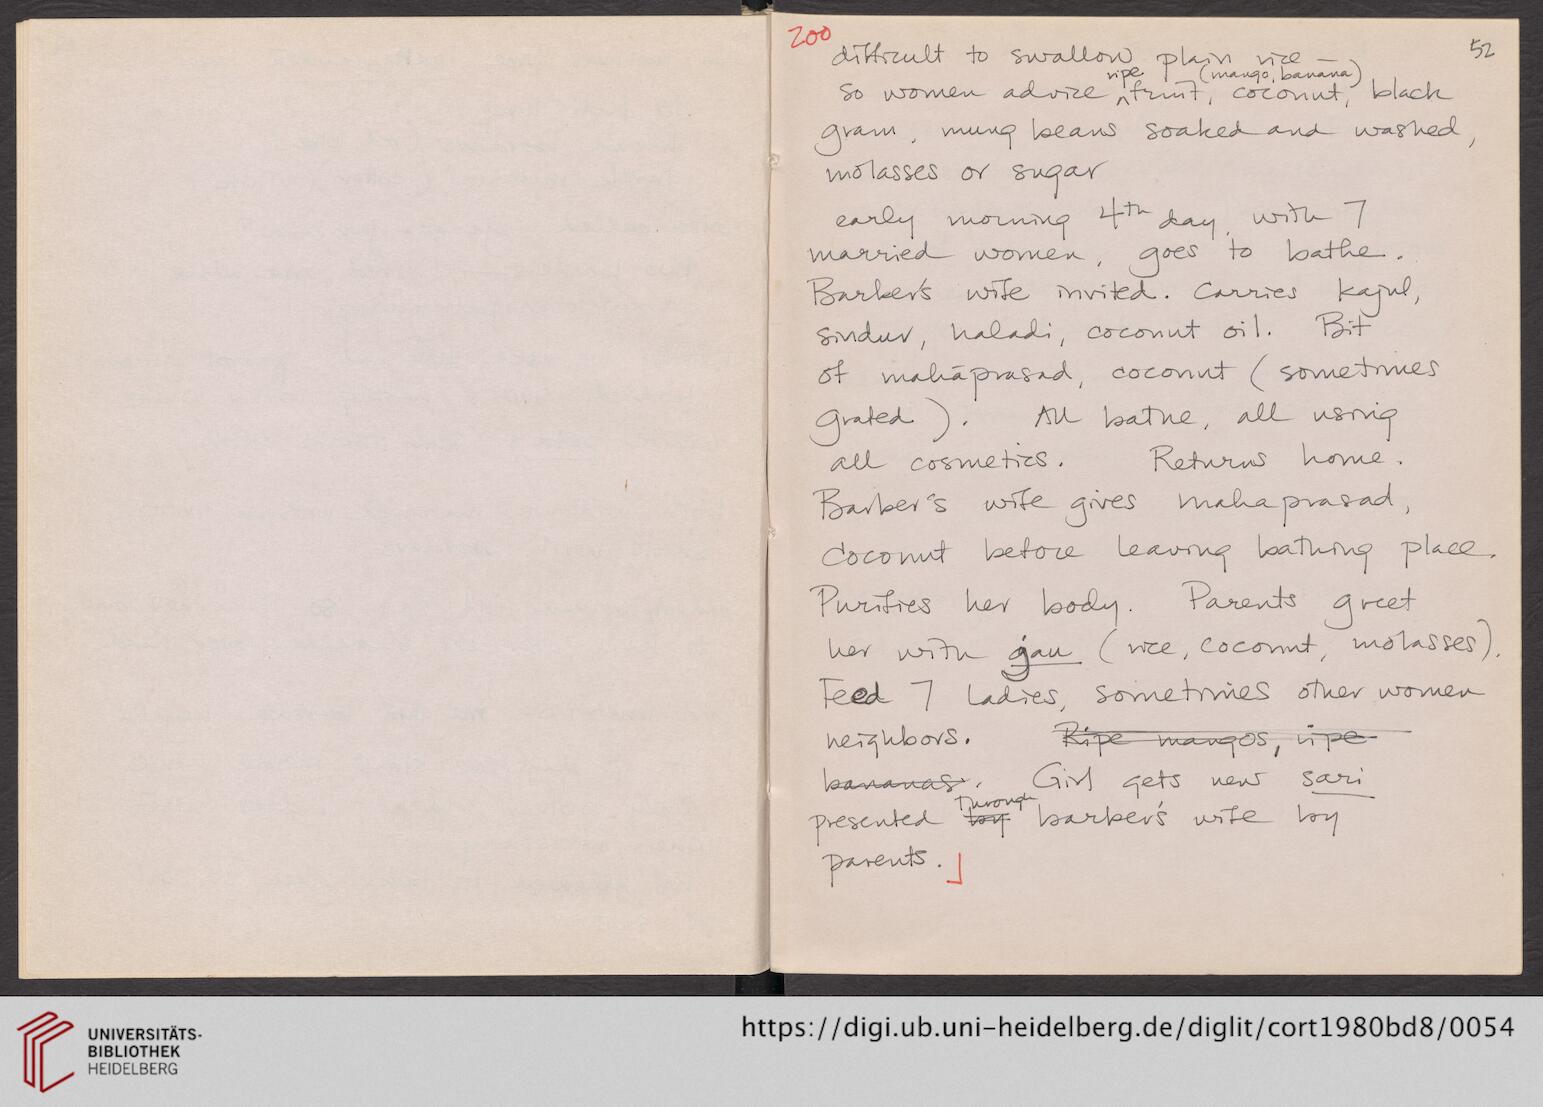 200
52
difficult to swallow plain rice —
ripe (mango, banana)
so women advice ^fruit, coconut, black
gram, mung beans soaked and washed,
molasses or sugar
early morning 4th day, with 7
married women, goes to bathe.
Barber's wife invited. Carries kajul,
sindur, haladi, coconut oil. Bit
of mahāprasad, coconut (sometimes
grated). All bathe, all using
all cosmetics. Returns home.
Barber's wife gives mahaprasad,
coconut before leaving bathing place.
Purifies her body. Parents greet
her with jau (rice, coconut, molasses).
Feed 7 ladies, sometimes other women
neighbors. Ripe mangos, ripe
bananas. Girl gets new sari
through
presented by barber's wife by
parents.
UNIVERSITÄTS-
BIBLIOTHEK
HEIDELBERG
https://digi.ub.uni-heidelberg.de/diglit/cort1980bd8/0054